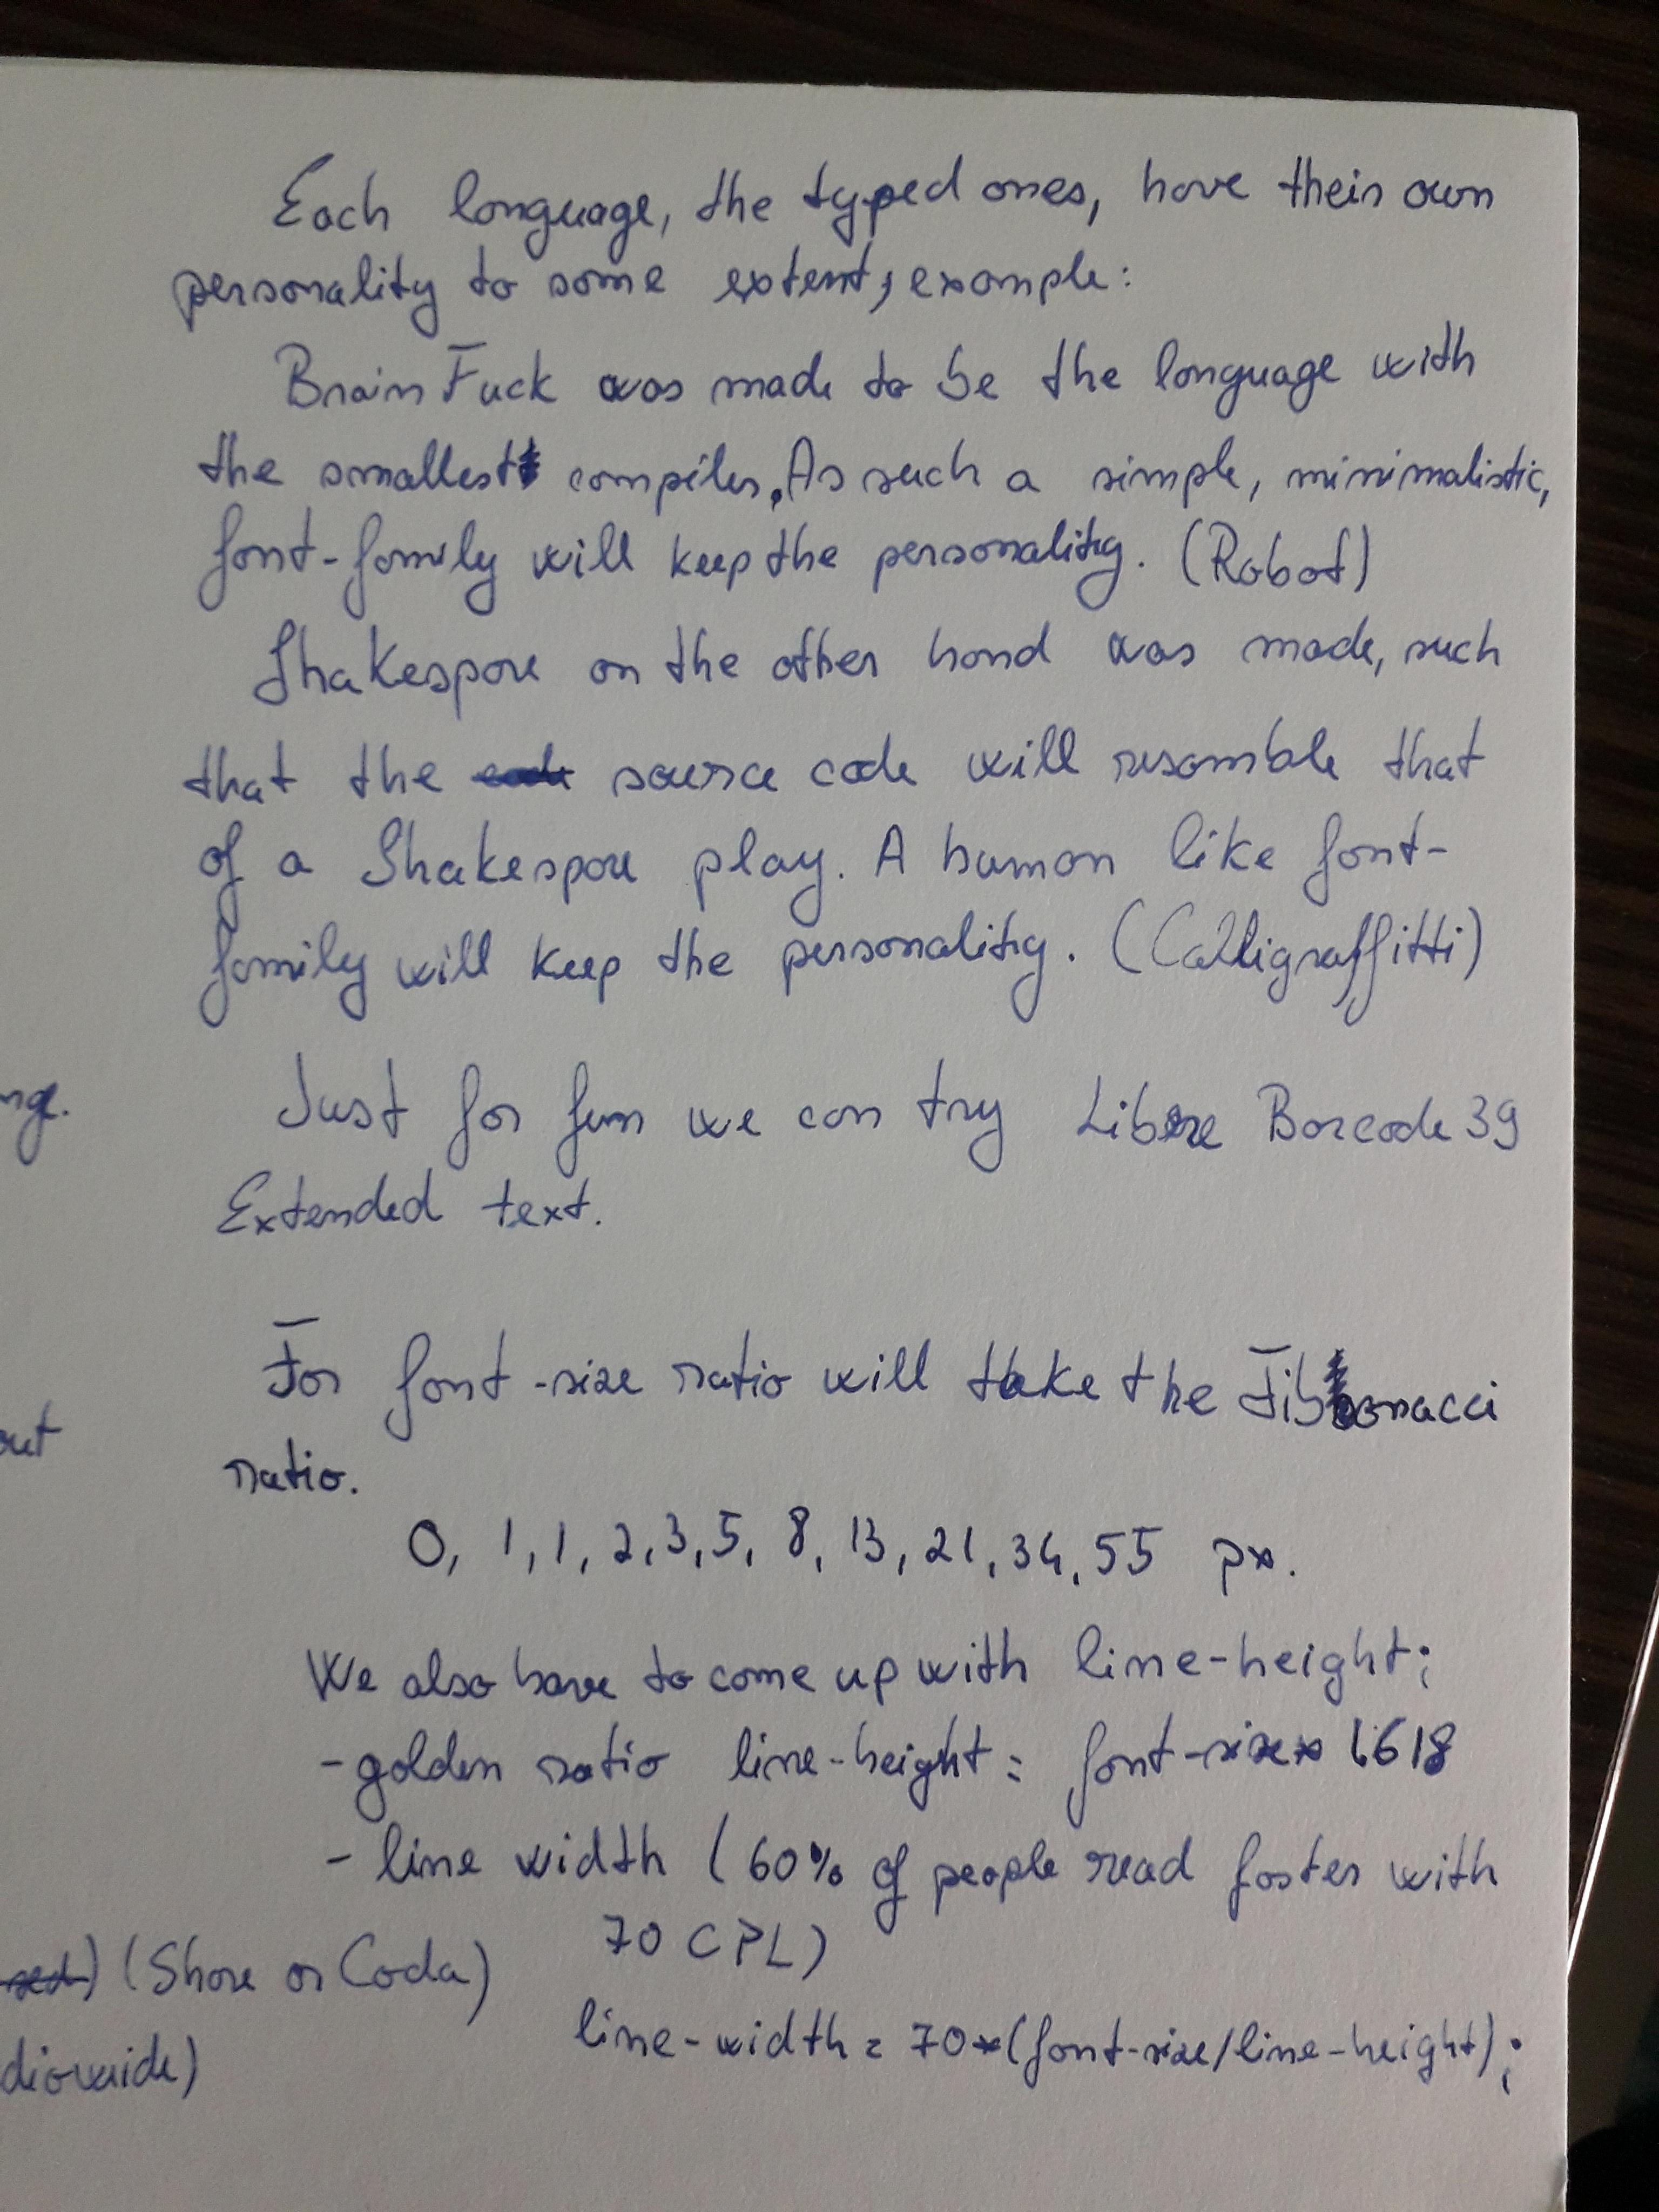 Each language, the typed ones, have their own
personality to some extent, example:
BrainFuck was made to be the language with
the smallest compiler. As such a simple, minimalistic,
font-family will keep the personality. (Robot)
Shakespare on the other hand was made, such
that the source code will resamble that
of a Shakespare play. A human like font-
family will keep the personality. (Calligraffitti)
Just for fun we can try Libre Barcode 39
Extended text.
For font-size ratio will take the Fibonacci
ratio.
0, 1, 1, 2, 3, 5, 8, 13, 21, 34, 55 px.
We also have to come up with line-height;
- golden ratio line-height = font-size * 1.618
- line width (60% of people read faster with
70 CPL)
line-width = 70*(font-size/line-height);
nge.
out
(Share or Coda)